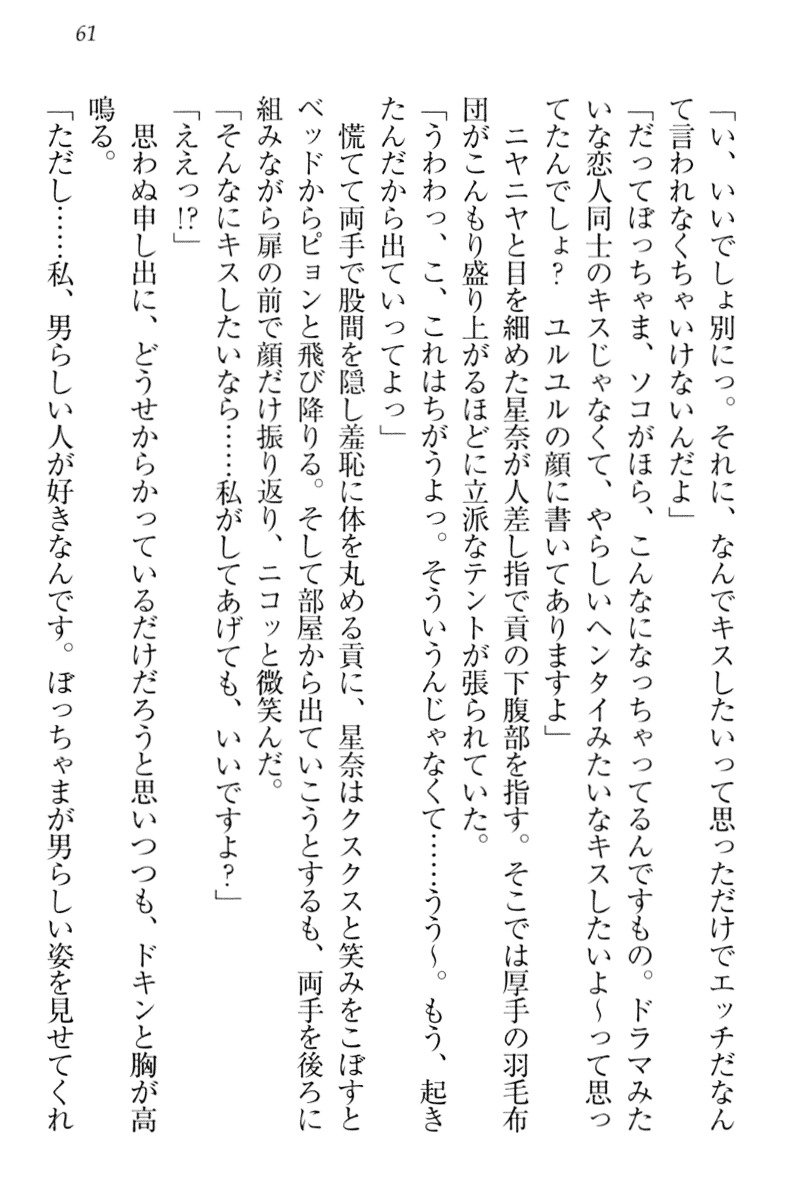 61
「い、いいでしょ別にっ。それに、なんでキスしたいって思っただけでエッチだなん
て言われなくちゃいけないんだよ」
「だってぼっちゃま、ソコがほら、こんなになっちゃってるんですもの。ドラマみた
いな恋人同士のキスじゃなくて、やらしいヘンタイみたいなキスしたいよ～って思っ
てたんでしょ？　ユルユルの顔に書いてありますよ」
　ニヤニヤと目を細めた星奈が人差し指で貢の下腹部を指す。そこでは厚手の羽毛布
団がこんもり盛り上がるほどに立派なテントが張られていた。
「うわわっ、こ、これはちがうよっ。そういうんじゃなくて……うう～。もう、起き
たんだから出ていってよっ」
　慌てて両手で股間を隠し羞恥に体を丸める貢に、星奈はクスクスと笑みをこぼすと
ベッドからピョンと飛び降りる。そして部屋から出ていこうとするも、両手を後ろに
組みながら扉の前で顔だけ振り返り、ニコッと微笑んだ。
「そんなにキスしたいなら……私がしてあげても、いいですよ？」
「ええっ!?」
　思わぬ申し出に、どうせからかっているだけだろうと思いつつも、ドキンと胸が高
鳴る。
「ただし……私、男らしい人が好きなんです。ぼっちゃまが男らしい姿を見せてくれ